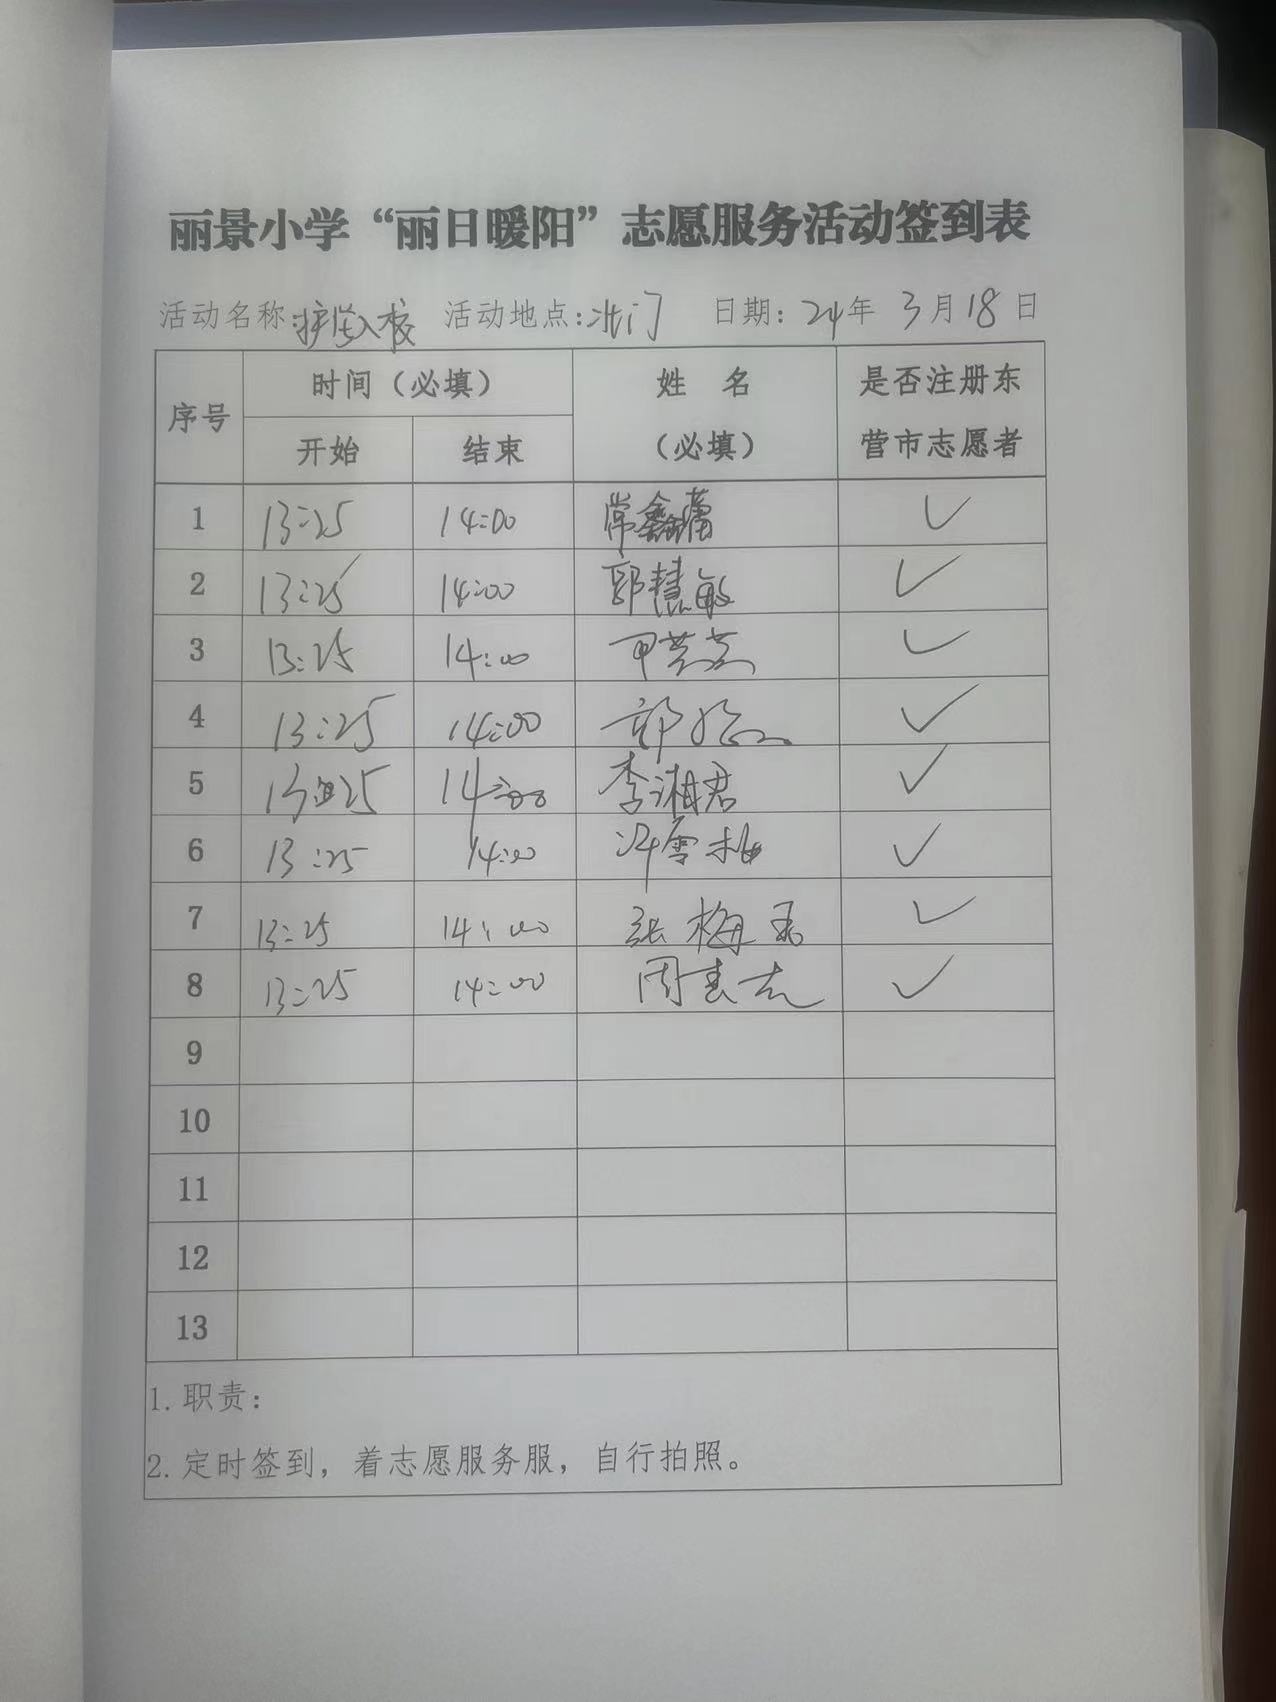 丽景小学“丽日暖阳”志愿服务活动签到表
活动名称:护学入校 活动地点:北门 日期: 24年 3月18日
序号 时间（必填） 姓 名（必填） 是否注册东营市志愿者
开始 结束
1 13:25 14:00 常鑫蕾 ✓
2 13:25 14:00 郭慧敏 ✓
3 13:25 14:00 ✓
4 13:25 14:00 郭 ✓
5 13:25 14:00 李湘君 ✓
6 13:25 14:00 雪梅 ✓
7 13:25 14:00 张梅 ✓
8 13:25 14:00 周志 ✓
9
10
11
12
13
1.职责：
2.定时签到，着志愿服务服，自行拍照。